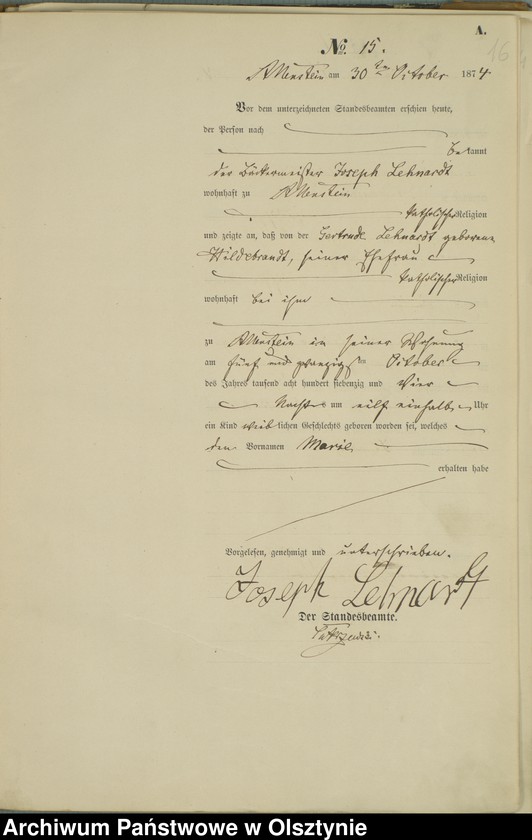 A.
16
No. 15.
Allenstein am 30ten October 1874
Vor dem unterzeichneten Standesbeamten erschien heute,
der Person nach
bekannt
der Bäckermeister Joseph Lehnardt
wohnhaft zu Allenstein
katholischer Religion
und zeigte an, daß von der Gertrude Lehnardt geborene
Hildebrandt, seiner Ehefrau
katholischer Religion
wohnhaft bei ihm
zu Allenstein in seiner Wohnung
am fünf und zwanzigsten October
des Jahres tausend acht hundert siebenzig und vier
Nachts um eilf einhalb Uhr
ein Kind weiblichen Geschlechts geboren worden sei, welches
den Vornamen Marie
erhalten habe
Vorgelesen, genehmigt und unterschrieben.
Joseph Lehnardt
Der Standesbeamte.
Archiwum Państwowe w Olsztynie